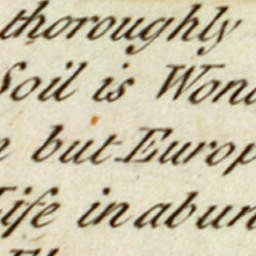 thoroughly
Soil is Won
but Europ
Life in abun